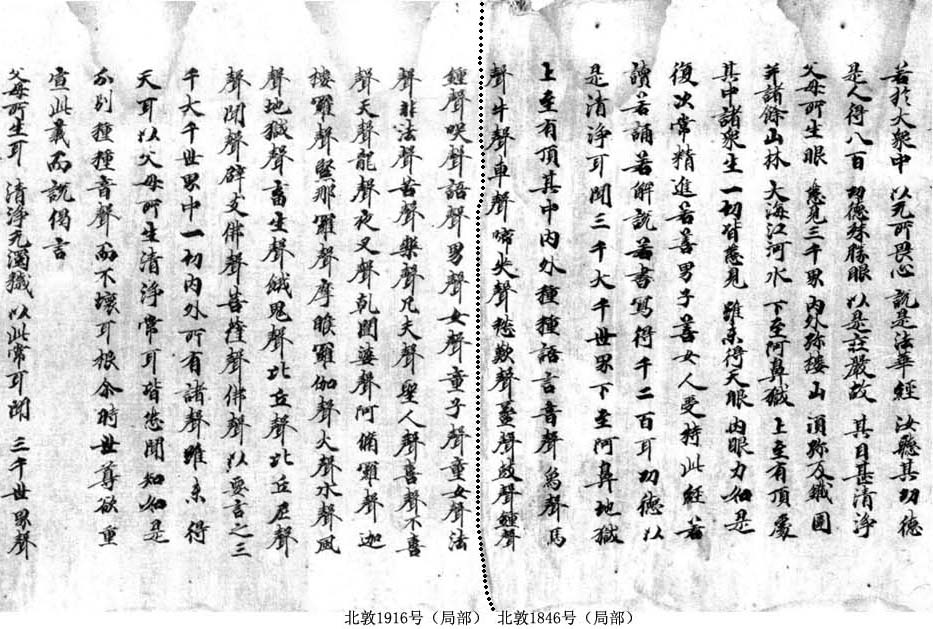 若於大衆中 以无所畏心 說是法華經 汝聽其功德
是人得八百 功德殊勝眼 以是莊嚴故 其目甚清淨
父母所生眼 悉見三千界 內外弥樓山 須弥及鐵圍
并諸餘山林 大海江河水 下至阿鼻獄 上至有頂處
其中諸衆生 一切皆悉見 雖未得天眼 肉眼力如是
復次常精進若善男子善女人受持此經若
讀若誦若解說若書寫得千二百耳功德以
是清淨耳聞三千大千世界下至阿鼻地獄
上至有頂其中內外種種語言音聲象聲馬
聲牛聲車聲啼哭聲愁歎聲蠡聲鼓聲鍾聲
鍾聲咲聲語聲男聲女聲童子聲童女聲法
聲非法聲苦聲樂聲凡夫聲聖人聲喜聲不喜
聲天聲龍聲夜叉聲乾闥婆聲阿脩羅聲迦
樓羅聲緊那羅聲摩睺羅伽聲火聲水聲風
聲地獄聲畜生聲餓鬼聲比丘聲比丘尼聲
聲聞聲辟支佛聲菩薩聲佛聲以要言之三
千大千世界中一切內外所有諸聲雖未得
天耳以父母所生清淨常耳皆悉聞知如是
分別種種音聲而不壞耳根尒時世尊欲重
宣此義而說偈言
父母所生耳 清淨无濁穢 以此常耳聞 三千世界聲
北敦1916号（局部） 北敦1846号（局部）